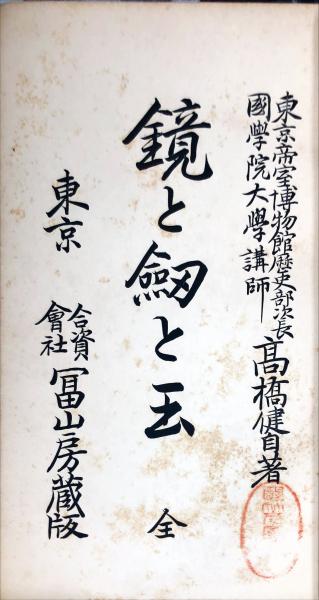 東京帝室博物館歴史部次長
國學院大學講師
高橋健自著
鏡と劒と玉
全
東京
合資
會社
冨山房蔵版